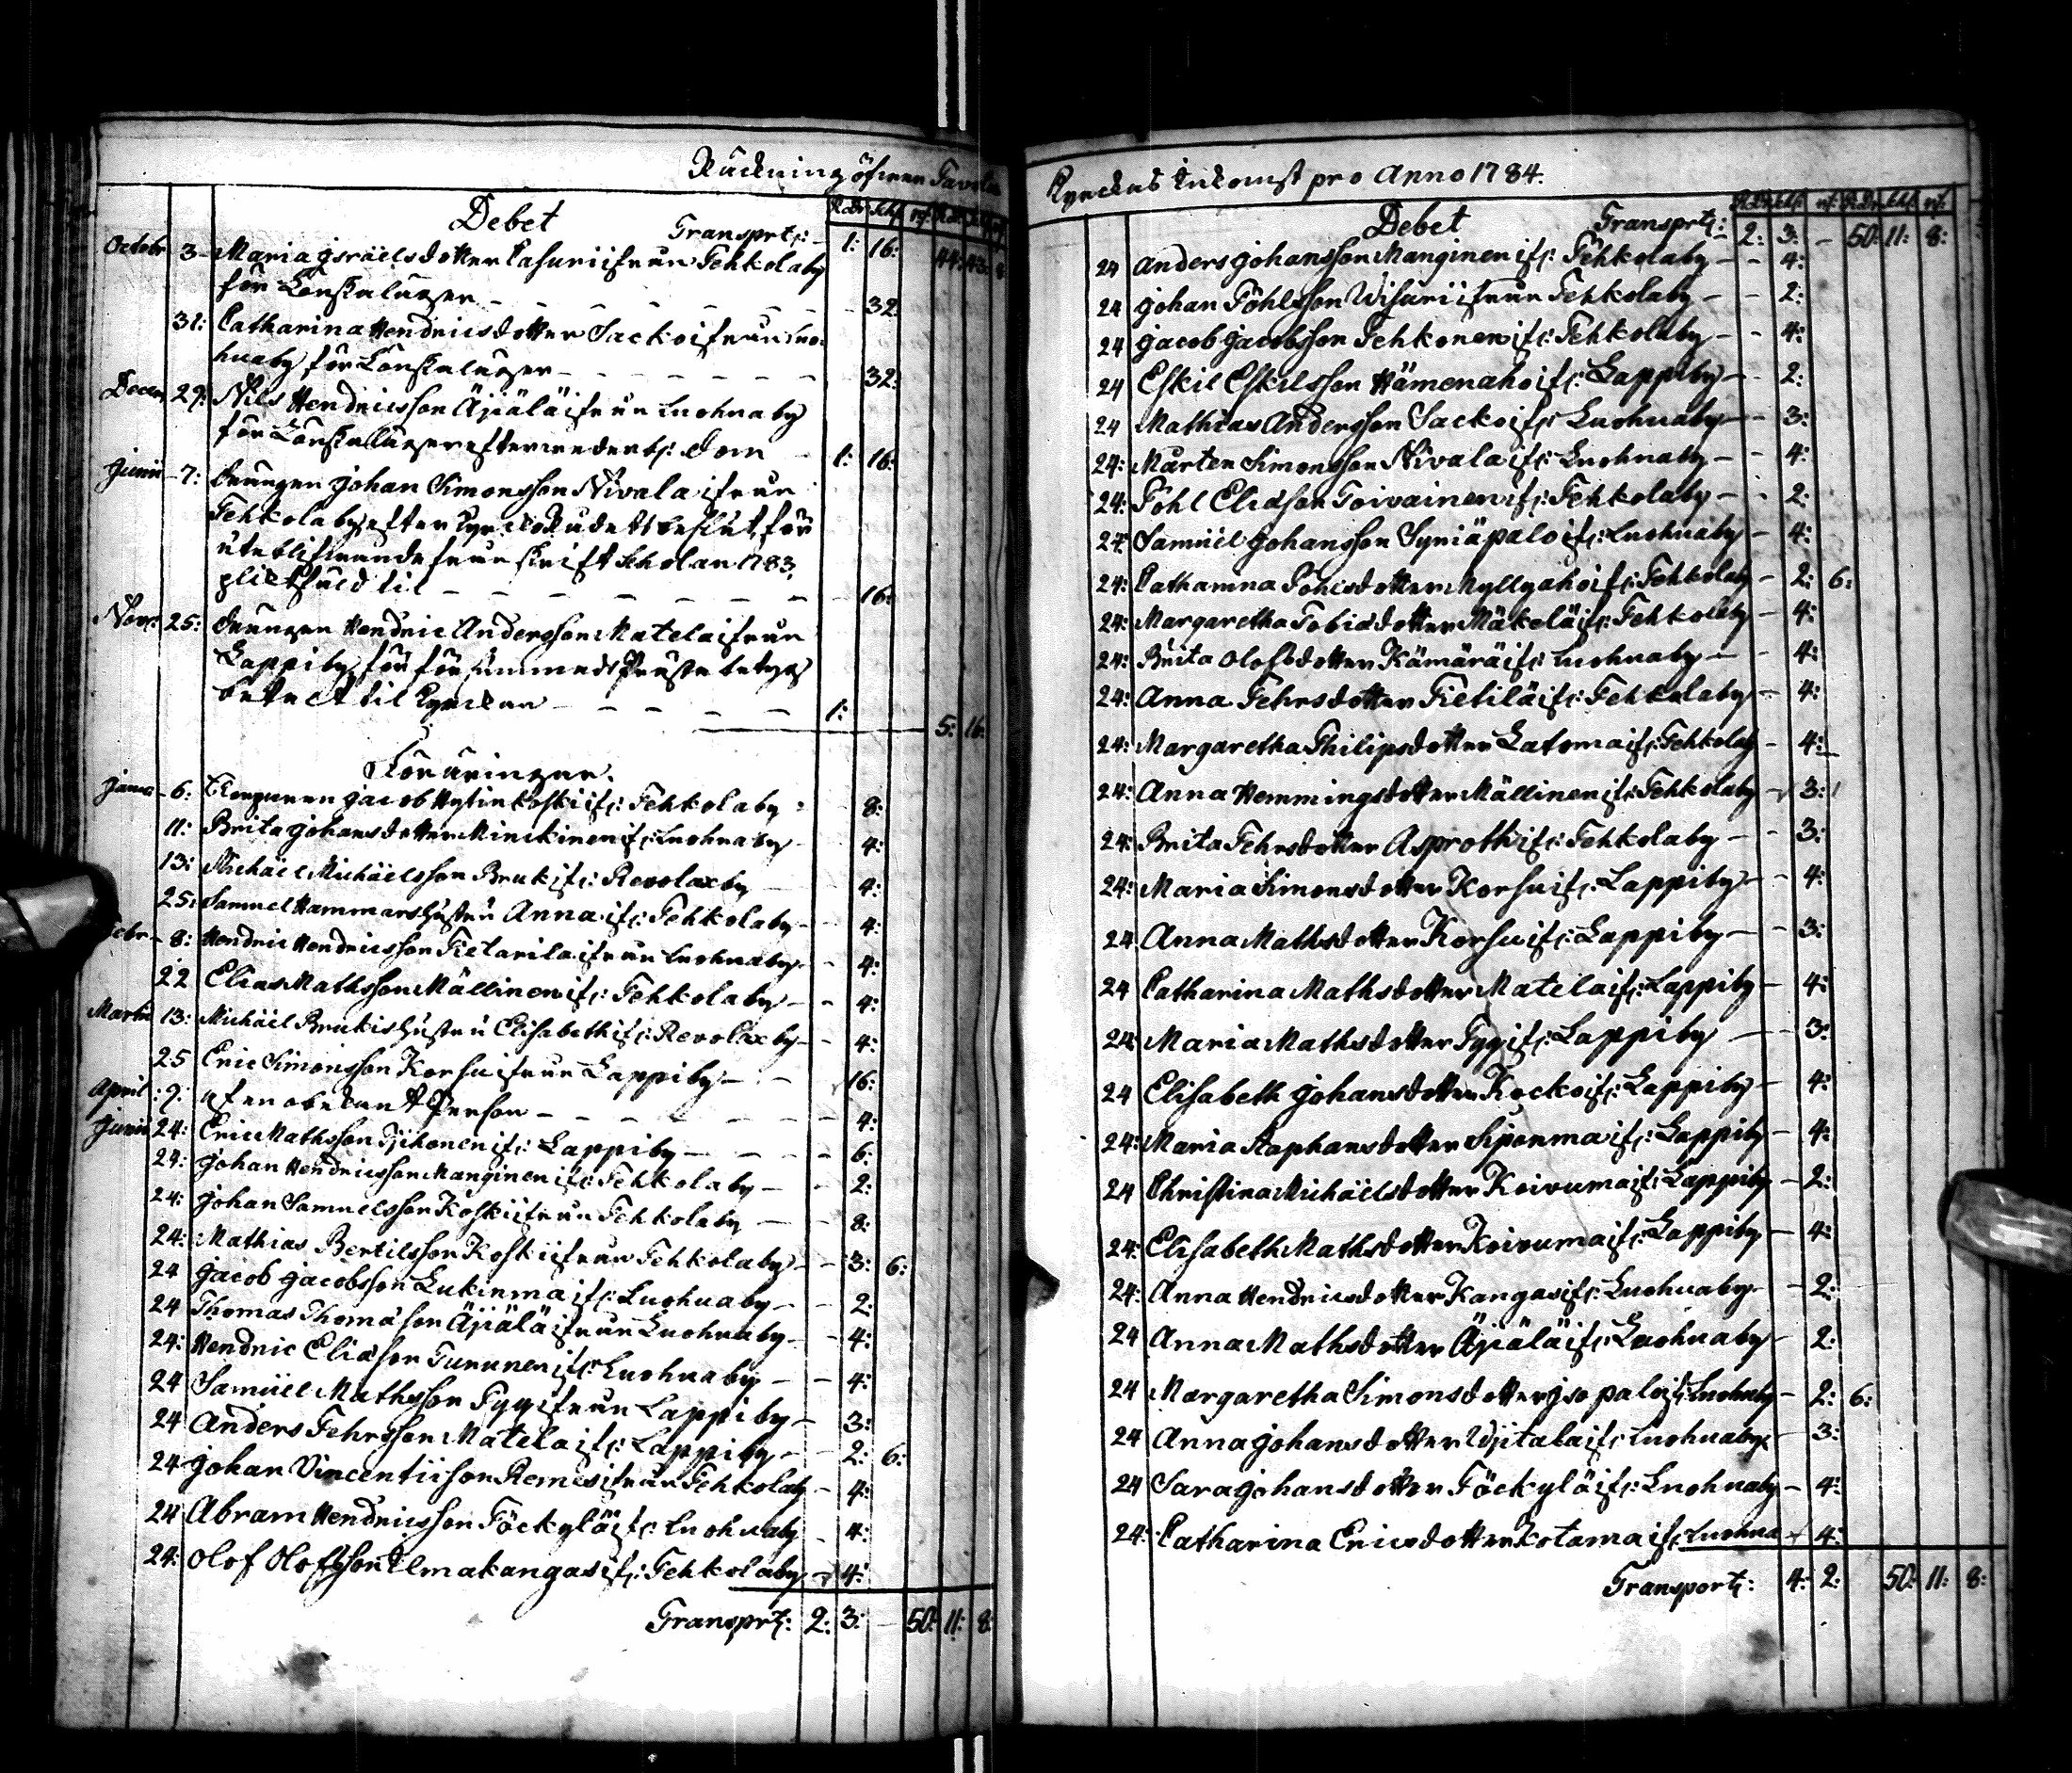 Räckning öfwer Pavola
Debet Transprt: 1: 16: 44: 43: 8
Octobr 3 Maria Israëlsdotter Pasuri ifrån Tehkolaby
för Lönskaläger 32
31: Catharina Hendricsdotter Sackoi ifrån Luo-
huaby för Lönskaläger 32:
Decem 29: Nils Hendricsson Äjiälä ifrån Luohuaby
för Lönskaläger efter wederb: dom 1: 16:
Junii 7: Drängen Johan Simonsson Nivala ifrån
Tehkolaby, efter KyrckoRådets beslut, för
uteblifwande från Skrift Scholan 1783,
plicktfäld til 16:
Novr: 25: Drängen Hendric Andersson Matela ifrån
Lappiby, för försummadt Präste betyg
betalt til Kyrckan 1:
5: 16:
Föräringar.
Janu 6: Jacob Hyttinkoski if: Tehkolaby 8:
11: Brita Johansdotter Minckinen if: Luohuaby 4:
13: Michäel Michäelsson Bruk if: Revolaxby 4:
25: Samuel Hammars Hustru Anna if: Tehkolaby 4:
Febr 8: Hendric Hendricsson Tietarila ifrån Luohuaby 4:
22 Elias Mathsson Mällinen if: Tehkolaby 4:
Martii 13: Michäel Brukis Hustru Elisabeth if: Revolaxby 4:
25 Eric Simonsson Korsu ifrån Lappiby 16:
April 9: af en obekant Person 4:
Junii 24: Eric Mathsson Pyikonen if: Lappiby 6:
24: Johan Hendricsson Manginen if: Tehkolaby 2:
24: Johan Samuelsson Koski ifrån Tehkolaby 8:
24: Mathias Bertilsson Koski ifrån Tehkolaby 3: 6:
24 Jacob Jacobsson Lukinma if: Luohuaby 2:
24 Thomas Thomason Äjiälä ifrån Luohuaby 4:
24: Hendric Eliason Turunen if: Luohuaby 4:
24 Samüel Mathsson Pyy ifrån Lappiby 3:
24 Anders Pehrsson Matela if: Lappiby 2: 6:
24 Johan Vincentiison Remes ifrån Tehkolaby 4:
24 Abram Hendricsson Töckylä if: Luohuaby 4:
24: Olof Olofsson Ilmakangas if: Tehkolaby 4:
Transprt: 2: 3: 50: 11: 8:
Kyrckas Inkomst pro Anno 1784.
Debet Transprt: 2: 3: 50: 11: 8:
24 Anders Johansson Manginen if: Tehkolaby 4:
24 Johan Pöhlsson Wisuri ifrån Tehkolaby 2:
24 Jacob Jacobsson Pehkonen if: Tehkolaby 4:
24 Eskil Eskilsson Hämenaho if: Lappiby 2:
24 Mathias Andersson Sackoi if: Luohuaby 3:
24: Mårten Simonsson Nivala if: Luohuaby 4:
24: Pöhl Eliason Toivainen if: Tehkolaby 2:
24: Samüel Johansson Syniäpalo if: Luohuaby 4:
24: Catharina Pohlsdotter Myllyaho if: Tehkolaby 2: 6:
24: Margaretha Tobiædotter Mäkelä if: Tehkolaby 4:
24: Brita Olofsdotter Kämärä if: Luohuaby 4:
24: Anna Pehrsdotter Tietilä if: Tehkolaby 4:
24: Margaretha Philipsdotter Latoma if: Tehkolaby 4:
24: Anna Hemmingsdotter Mällinen if: Tehkolaby 3:
24: Brita Pehrsdotter Asproth if: Tehkolaby 3:
24: Maria Simonsdotter Korsu if: Lappiby 4:
24 Anna Mathsdotter Korsu if: Lappiby 3:
24 Catharina Mathsdotter Matela if: Lappiby 4:
24: Maria Mathsdotter Pyy if: Lappiby 3:
24 Elisabeth Johansdotter Kocko if: Lappiby 4:
24: Maria Staphansdotter Siponma if: Lappiby 4:
24 Christina Michäelsdotter Koivuma if: Lappiby 2:
24: Elisabeth Mathsdotter Koivuma if: Lappiby 4:
24: Anna Hendricsdotter Kangas if: Luohuaby 2:
24 Anna Mathsdotter Äjiälä if: Luohuaby 2:
24 Margaretha Simonsdotter Isopalo if: Luohuby 2: 6:
24 Anna Johansdotter Wjitala if: Luohuaby 3:
24 Sara Johansdotter Töckylä if: Luohuaby 4:
24: Catharina Ericsdotter Kotama if: Luohua 4:
Transport: 4: 2: 50: 11: 8: